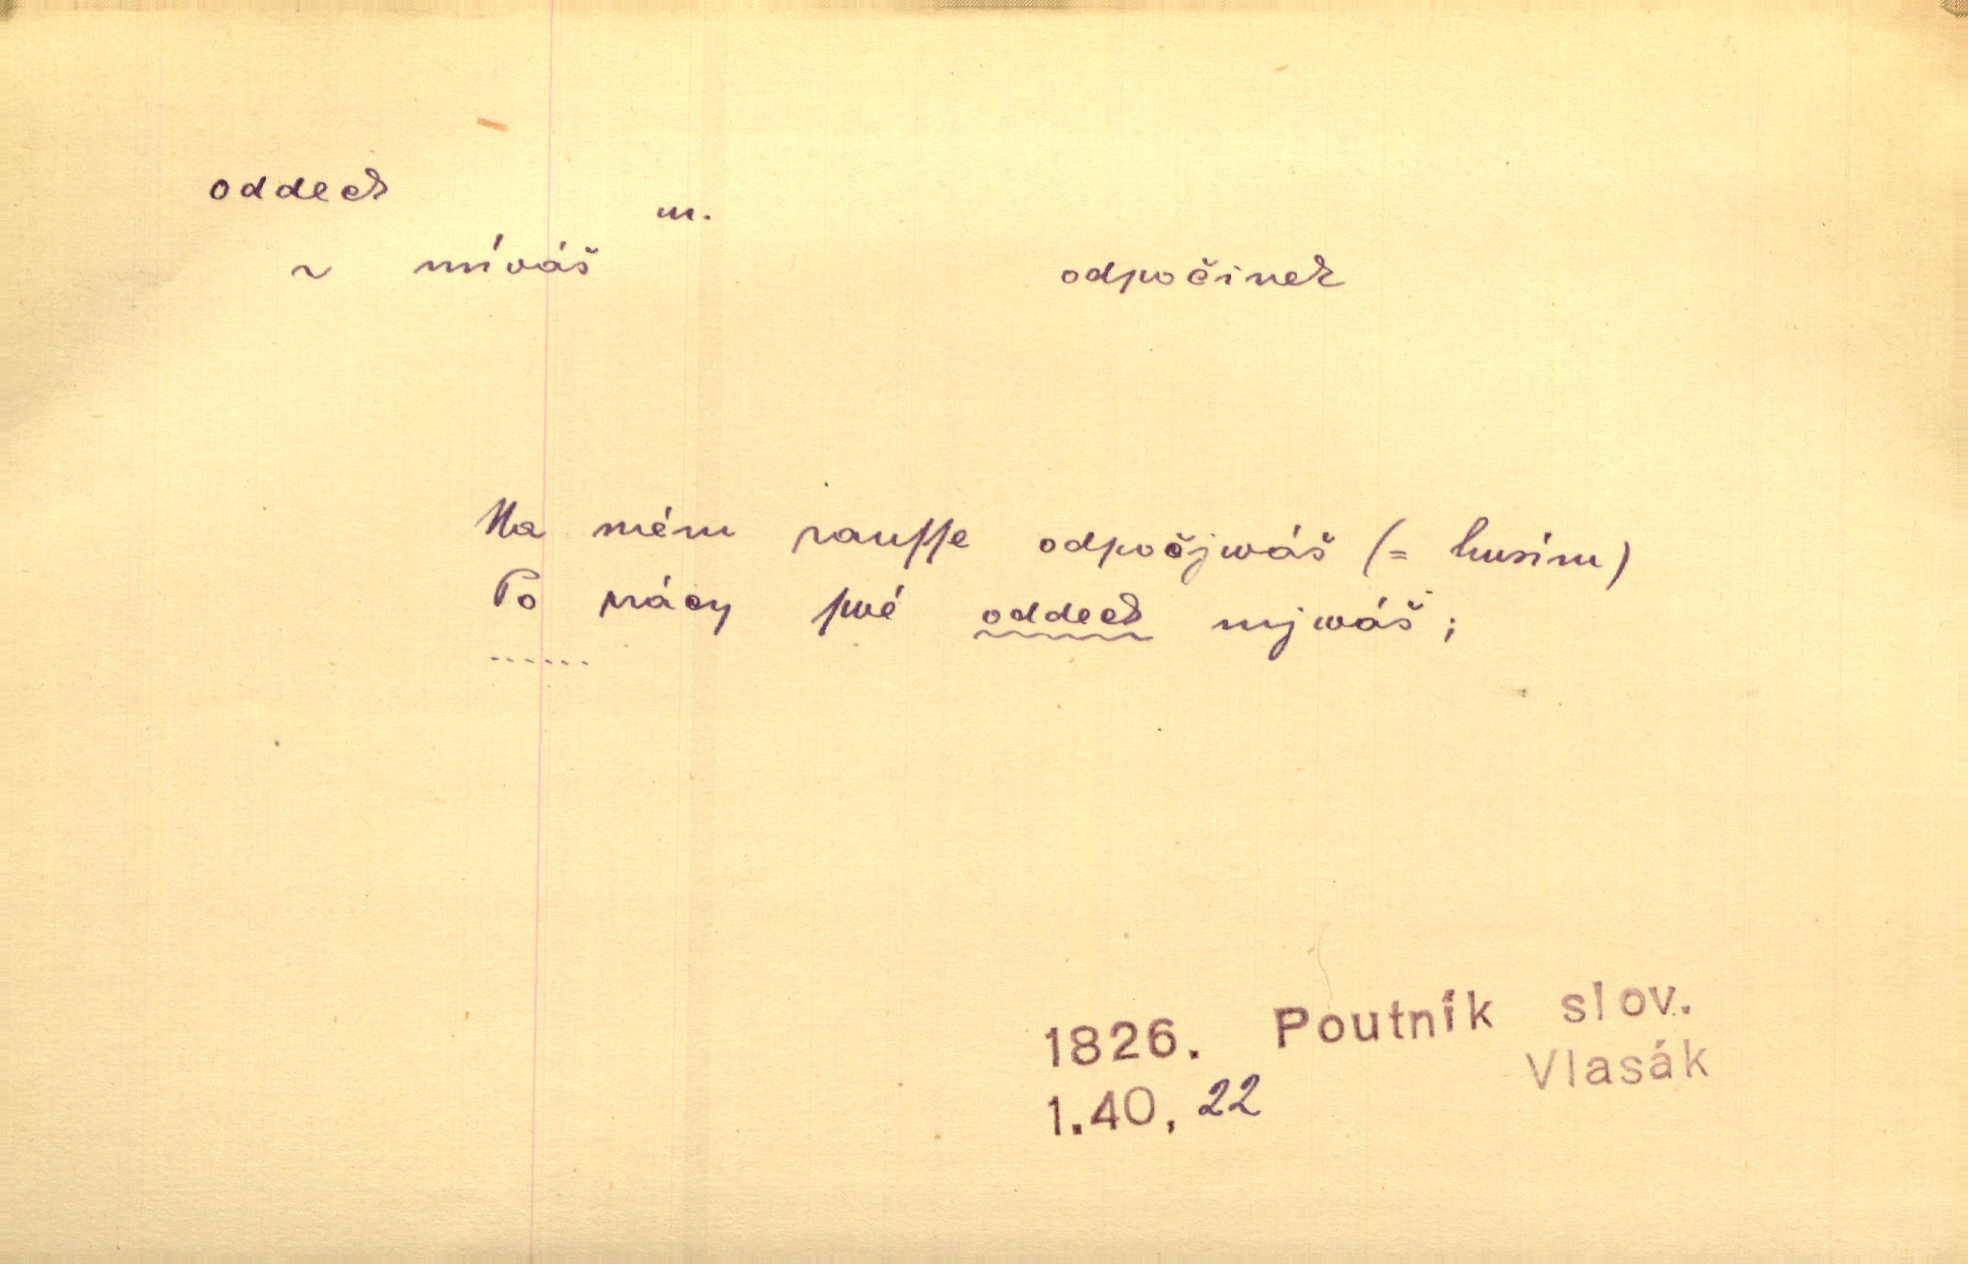 oddech
m.
~ míváš
odpočinek
Na mém rauſſe odpočjwáš (= husím)
Po prácy ſwé oddech mjwáš;
......
1826. Poutník slov.
Vlasák
1.40, 22